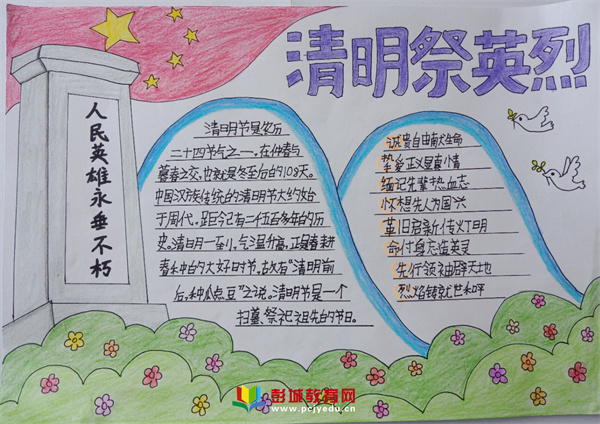 清明祭英烈
人民英雄永垂不朽
清明节是农历
二十四节气之一,在仲春与
暮春之交,也就是冬至后的108天。
中国汉族传统的清明节大约始
于周代,距今已有二千五百多年的历
史。清明一到,气温升高,正是春耕
春种的大好时节,故有"清明前
后,种瓜点豆"之说。清明节是一个
扫墓、祭祀祖先的节日。
诚贵自由献生命
挚爱正义显真情
缅记先辈热血志
怀想先人为国兴
革旧启新传灯明
命付身忘造英灵
先行领袖辟天地
烈焰铸就世和呼
彭城教育网
www.pcjyedu.cn